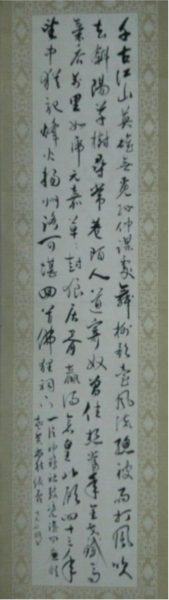 千古江山英雄無覓孫仲謀處舞榭歌臺風流總被雨打風吹
去斜陽草樹尋常巷陌人道寄奴曾住想當年金戈鐵馬
氣吞萬里如虎元嘉草草封狼居胥贏得倉皇北顧四十三年
望中猶記烽火揚州路可堪回首佛狸祠下一片神鴉社鼓憑誰問廉頗
老矣尚能飯否